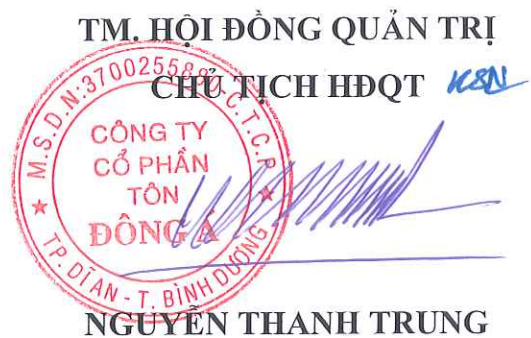 TM. HỘI ĐỒNG QUẢN TRỊ
CHỦ TỊCH HĐQT
M.S.D.N:3700255880-C.T.C.P
CÔNG TY
CỔ PHẦN
TÔN
ĐÔNG Á
TP. DĨ AN - T. BÌNH DƯƠNG
NGUYỄN THANH TRUNG